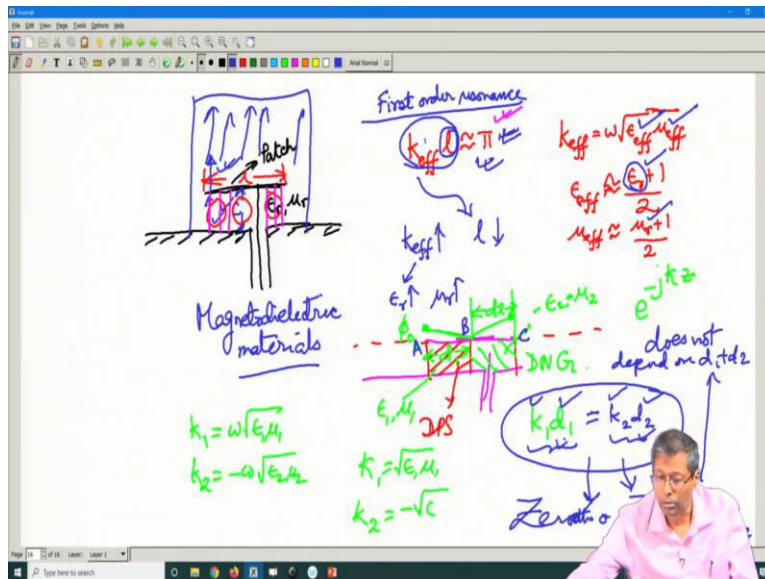 Journal
File Edit View Page Tools Options Help
Arial Normal 12
First order resonance
Patch
l
εr, μr
k_eff l ≈ π
k_eff = ω√ε_eff μ_eff
ε_eff ≈ (εr+1)/2
μ_eff ≈ (μr+1)/2
k_eff ↑ l ↓
εr ↑ μr ↑
e^-jkz
Magnetodielectric
materials
d2
-ε2, -μ2
A B C
DNG
ε1, μ1
DPS
does not
depend on d1+d2
k1d1 = k2d2
k1 = ω√ε1μ1
k2 = -ω√ε2μ2
k1 = √ε1μ1
k2 = -√
Page 16 of 16 Layer: Layer 1
Type here to search